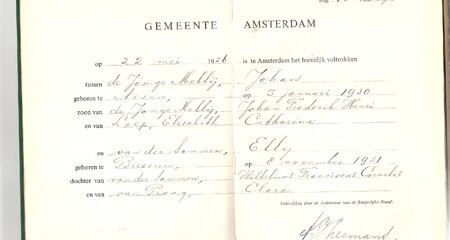 GEMEENTE AMSTERDAM
op 22 mei 1956 is te Amsterdam het huwelijk voltrokken
tussen de Jonge Mellij, Johan
geboren te Assen, op 5 januari 1930
zoon van de Jonge Mellij, Johan Frederik Henri
en van Leep, Elisabeth Catharina
en van der Sommen, Elly
geboren te Bussum, op 8 november 1931
dochter van van der Sommen, Wilhelmus Franciscus Cornelis
en van van Praag, Clara
Voltrokken door de Ambtenaar van de Burgerlijke Stand,